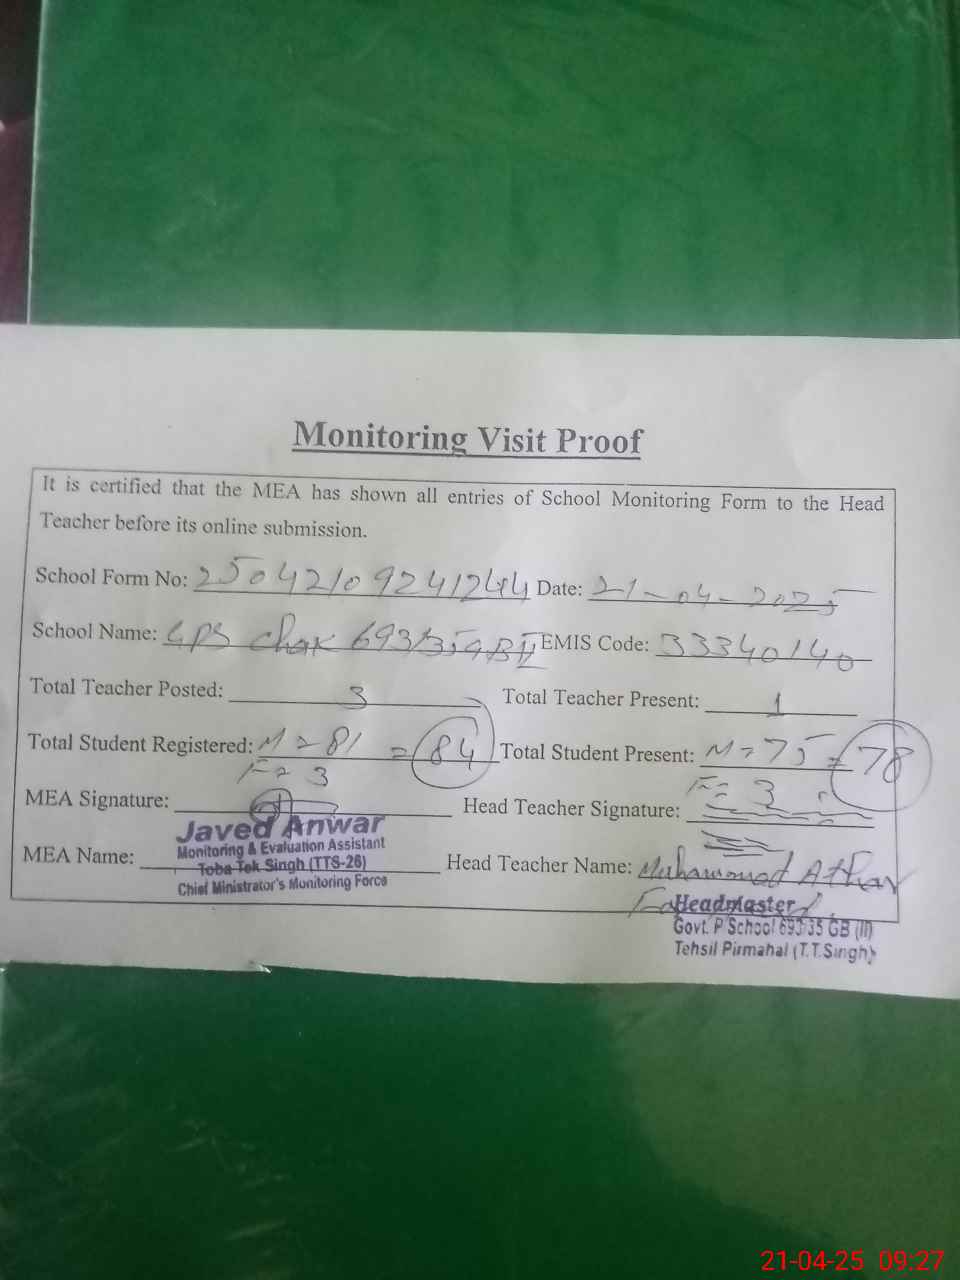 Monitoring Visit Proof
It is certified that the MEA has shown all entries of School Monitoring Form to the Head
Teacher before its online submission.
School Form No: 25042109241244 Date: 21-04-2025
School Name: GPS Chak 693/35GB II EMIS Code: 33340140
Total Teacher Posted: 3 Total Teacher Present: 1
Total Student Registered: M = 81 = 84 Total Student Present: M = 75 = 78
F = 3 F = 3
MEA Signature: Head Teacher Signature:
Javed Anwar
Monitoring & Evaluation Assistant
Toba Tek Singh (TTS-26)
Chief Ministrator's Monitoring Force
MEA Name: Head Teacher Name: Muhammad Athar
Headmaster
Govt. P School 693/35 GB (II)
Tehsil Pirmahal (T.T.Singh)
21-04-25 09:27